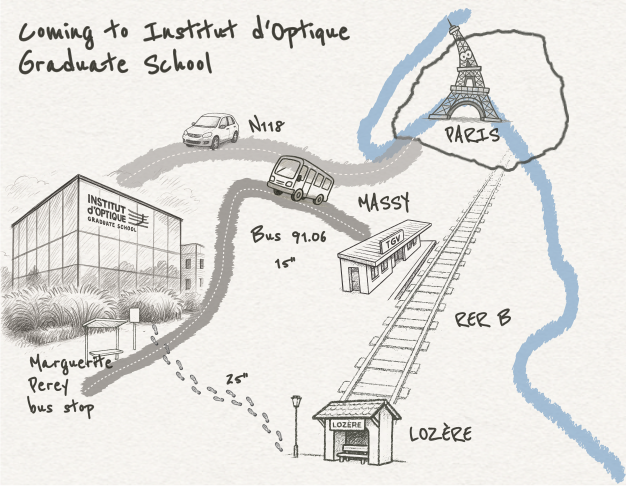 Coming to Institut d'Optique
Graduate School
PARIS
N118
INSTITUT
d'OPTIQUE
GRADUATE SCHOOL
MASSY
TGV
Bus 91.06
15"
RER B
Marguerite
Perey
bus stop
25"
LOZÈRE
LOZÈRE